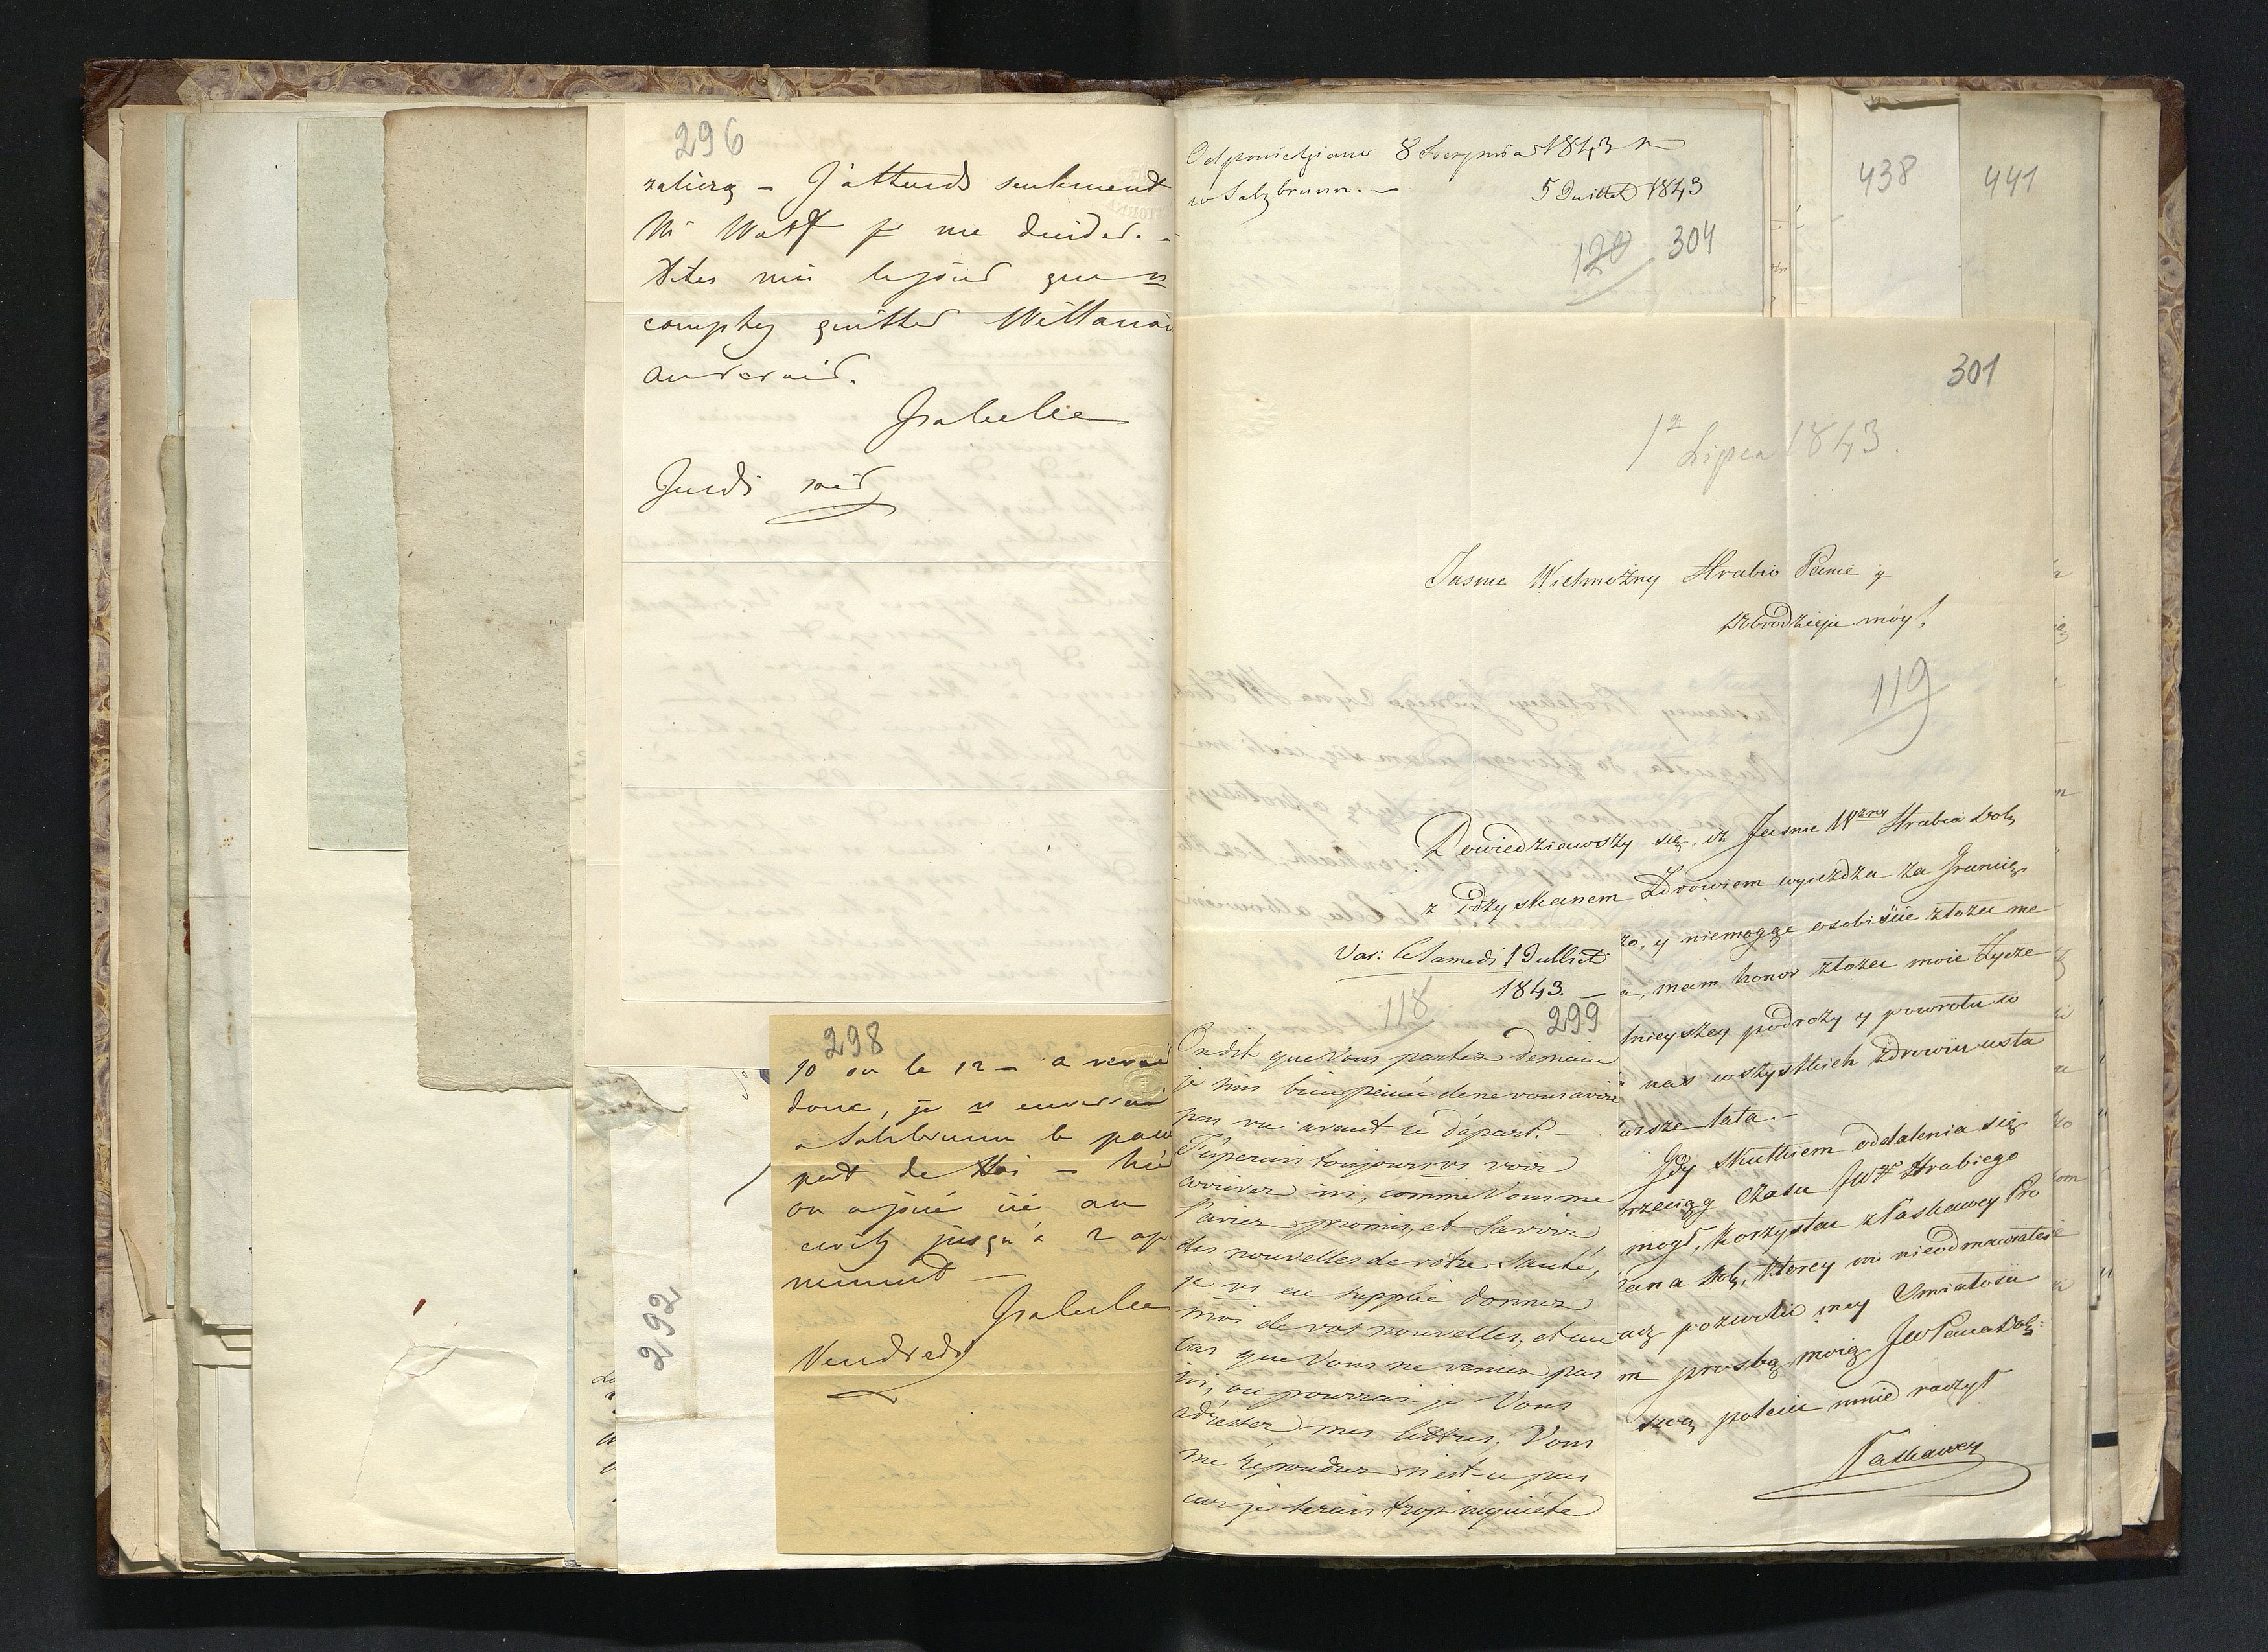 296
J'attends seulement
Mr Wolff pr me decider. –
Dites moi le jour que vs
comptez quitter Willanów
au revoir.
Isabelle
Jeudi soir
298
10 ou le 12 – a revoir
donc, je vs enverrai
a Salzbrunn le
part de moi – hier
on a joué ici au
jusqu'à 2 ap
minuit –
Isabelle
Vendredi
292
Odpowiedziano 8 Sierpnia 1843 r
w Salzbrunn. –
5 Juillet 1843
120 304
438
441
301
1 Lipca 1843.
Jasnie Wielmożny Hrabio Panie y
Dobrodzieju móy!
119
Dowiedziawszy się, iż Jasnie Wzny Hrabia Dob,
z Zdrowiem wyieżdża za Granicę
zo, y niemogąc osobiście złożeu me
a, mam honor złożeu moie Życze
lnieyszey podroży y powrotu w
nas wszystkich zdrowiu
lata. –
Gdy skutkiem oddalenia się
przeciąg Czasu JWo Hrabiego
mogł, Korzystau z Łaskawey Pro
Pana Dob, Ktorey mi nieodmawiałeś
pozwolić mey Śmiałości
m prosbą moią JWPana Dob:
polecić mnie raczył
Łaskawey
Var: le Samedi 1 Juillet
1843. –
118
299
On dit que Vous partez demain
je suis bien peinée de ne vous avoir
pas vu avant ce départ. –
J'esperais toujours vs voir
arriver ici, comme Vous me
l'aviez promis, et savoir
des nouvelles de votre santé,
je vs en supplie donnez
moi de vos nouvelles, et au
cas que Vous ne veniez pas
ici, ou pourrai-je Vous
adresser mes lettres, Vous
me répondrez n'est-ce pas
car je serais trop inquiète